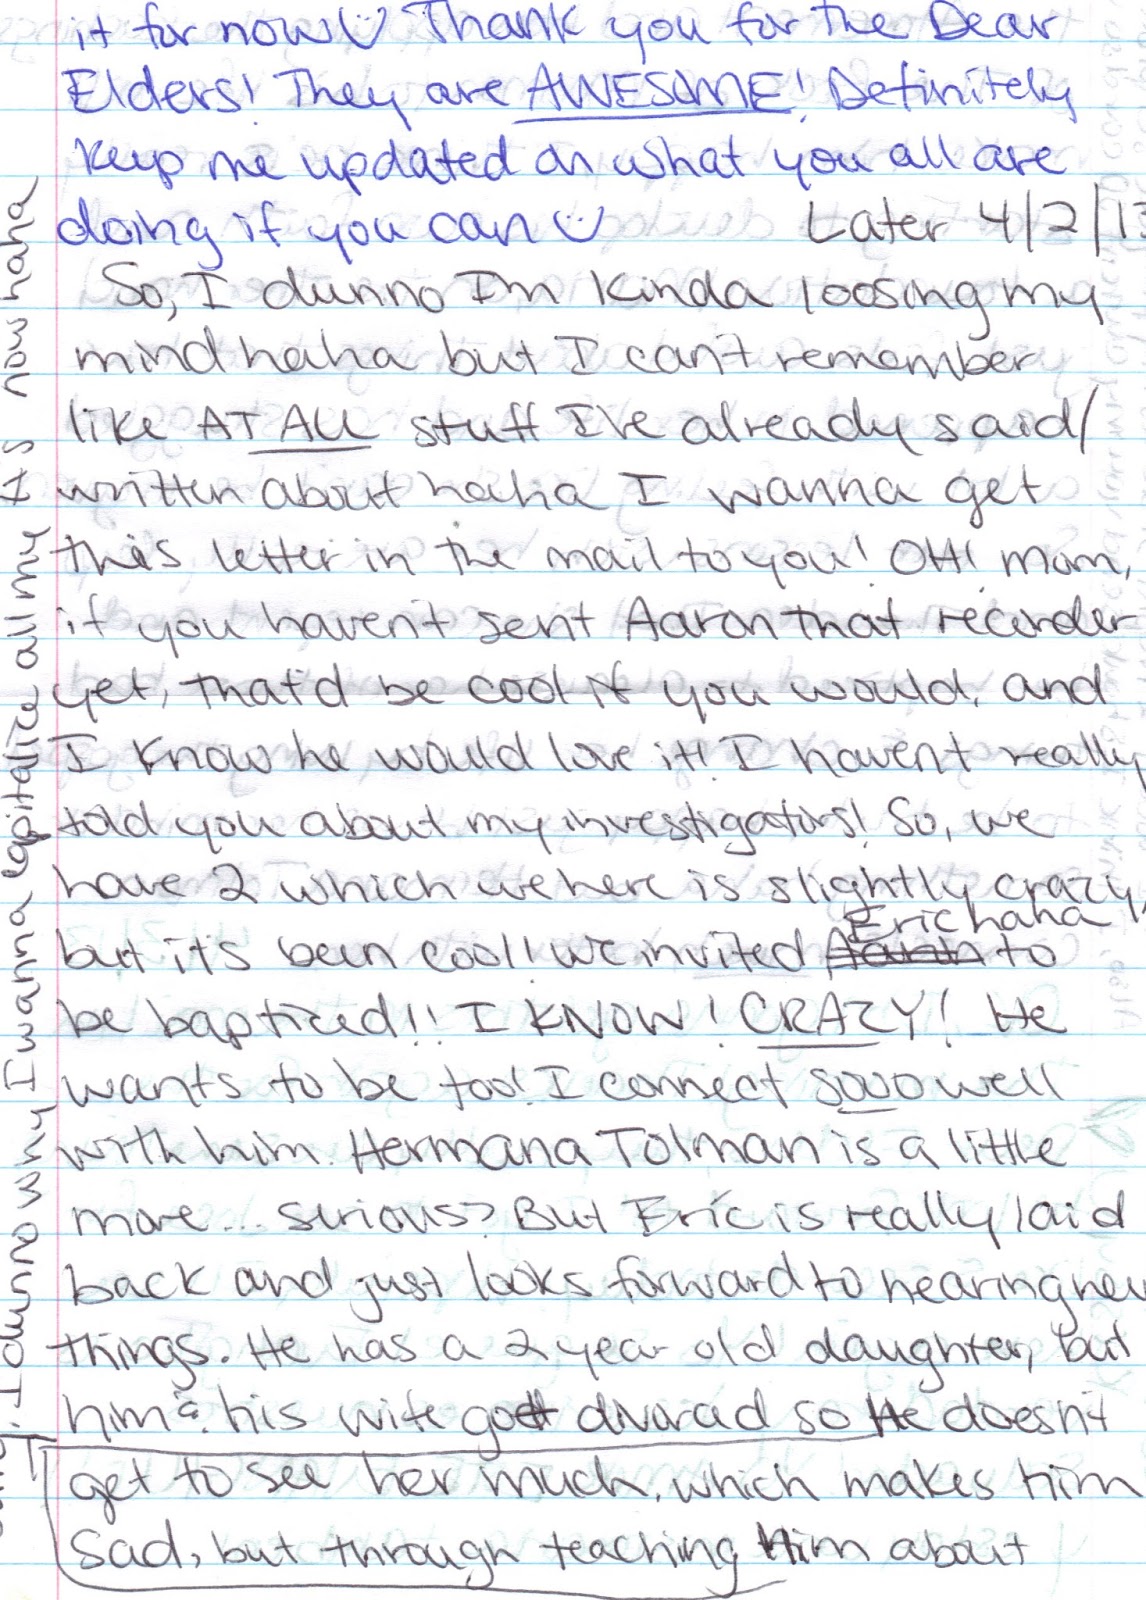 it for now Thank you for the Dear
Elders! They are AWESOME! Definitely
keep me updated on what you all are
doing if you can
Later 4/2/13
So, I dunno I'm kinda loosing my
mind haha but I can't remember
like AT ALL stuff I've already said/
written about haha I wanna get
this letter in the mail to you! OH! Mom,
if you haven't sent Aaron that recorder
yet, that'd be cool if you would, and
I know he would love it! I haven't really
told you about my investigators! So, we
have 2 which we here is slightly crazy,
but it's been cool! We invited Eric haha to
be baptized!! I KNOW! CRAZY! He
wants to be too! I connect sooo well
with him. Hermana Tolman is a little
more... serious? But Eric is really laid
back and just looks forward to hearing new
things. He has a 2 year old daughter, but
him & his wife got divorced so He doesn't
get to see her much, which makes him
sad, but through teaching Him about
I dunno why I wanna capitalize all my H's now haha